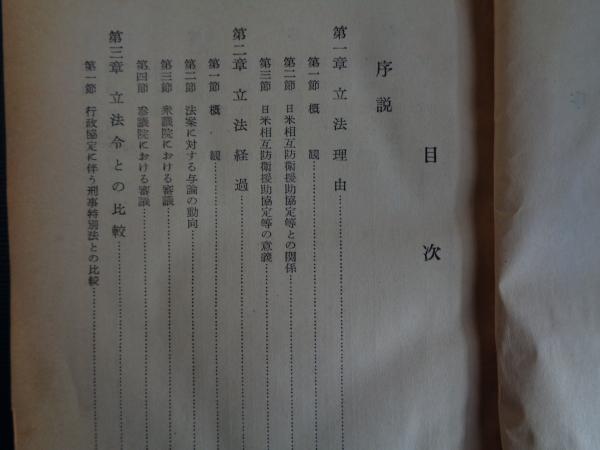 目次
序説
第一章 立法理由
第一節 概観
第二節 日米相互防衛援助協定等との関係
第三節 日米相互防衛援助協定等の意義
第二章 立法経過
第一節 概観
第二節 法案に対する与論の動向
第三節 衆議院における審議
第四節 参議院における審議
第三章 立法令との比較
第一節 行政協定に伴う刑事特別法との比較